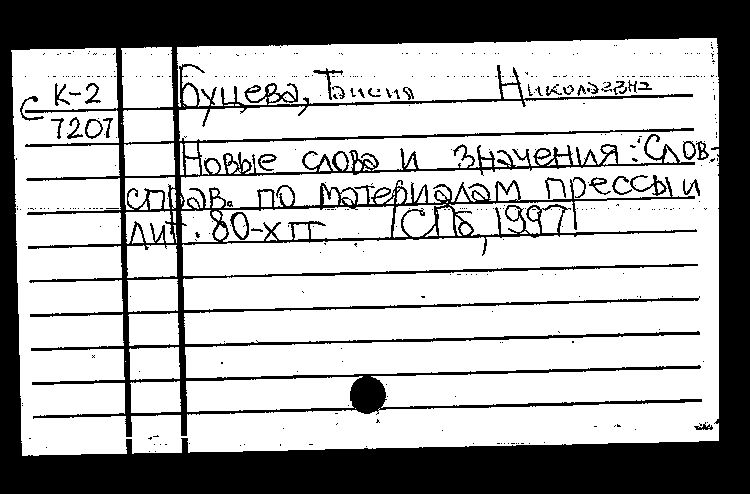 с К-2
7207
Буцева, Таисия Николаевна
Новые слова и значения: Слов.-
справ. по материалам прессы и
лит. 80-х гг. СПб, 1997